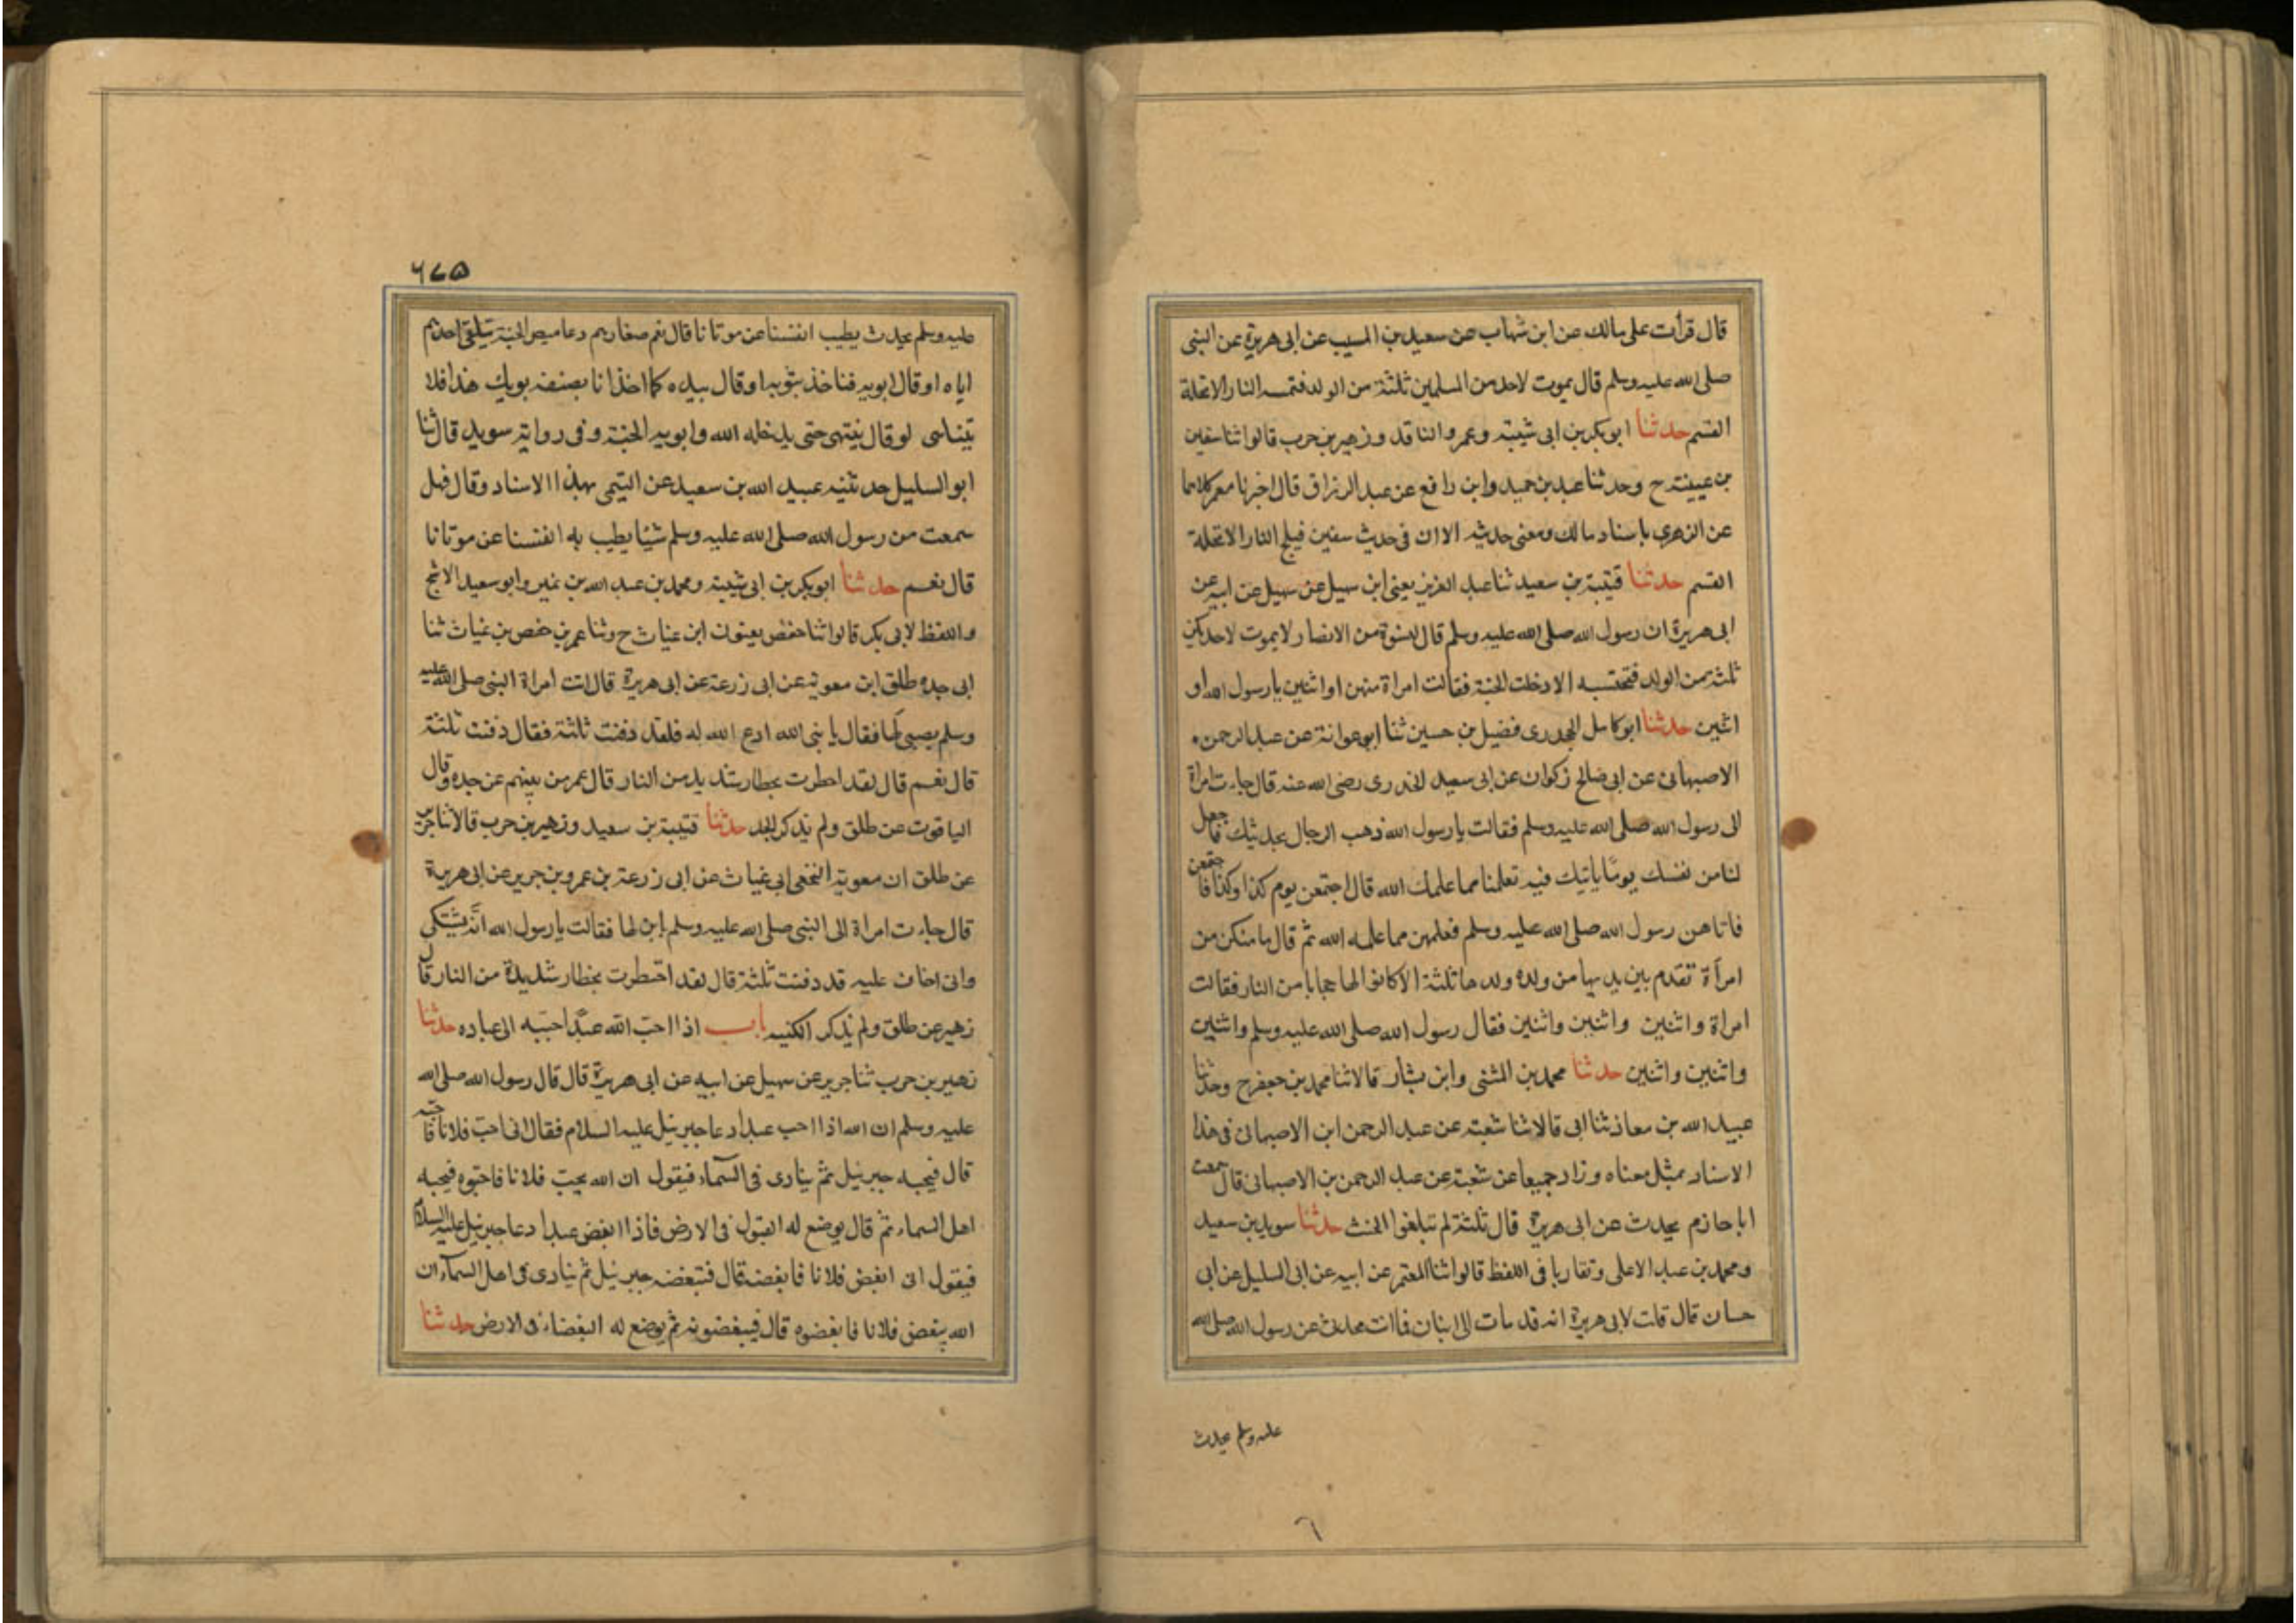 قال قرأت على مالك عن ابن شهاب عن سعيد بن المسيب عن ابى هريرة عن النبى
صلى الله عليه وسلم قال يموت لاحد من المسلمين ثلثة من الولد فتمسه النار الا تحلة
القسم حدثنا ابو بكر بن ابى شيبة وعمرو الناقد وزهير بن حرب قالوا ثنا سفين
بن عيينة ح وحدثنا عبد بن حميد وابن رافع عن عبد الرزاق قال اخبرنا معمر كلاهما
عن الزهرى باسناد مالك ومعنى حديثه الا ان فى حديث سفين فيلج النار الا تحلة
القسم حدثنا قتيبة بن سعيد ثنا عبد العزيز يعنى ابن سهيل عن سهيل عن ابيه عن
ابى هريرة ان رسول الله صلى الله عليه وسلم قال لنسوة من الانصار لا يموت لاحديكن
ثلثة من الولد فتحتسبه الا دخلت الجنة فقالت امراة منهن او اثنين يا رسول الله او
اثنين حدثنا ابو كامل الجحدرى فضيل بن حسين ثنا ابو عوانة عن عبد الرحمن
الاصبهانى عن ابى صالح زكوان عن ابى سعيد الخدرى رضى الله عنه قال جاءت امراة
الى رسول الله صلى الله عليه وسلم فقالت يا رسول الله ذهب الرجال بحديثك فاجعل
لنا من نفسك يوما ياتيك فيه تعلمنا مما علمك الله قال اجتمعن يوم كذا وكذا فاجتمعن
فاتاهن رسول الله صلى الله عليه وسلم فعلمهن مما علمه الله ثم قال ما منكن من
امرأة تقدم بين يديها من ولده ولدها ثلثة الا كانوا لها حجابا من النار فقالت
امراة واثنين واثنين واثنين فقال رسول الله صلى الله عليه وسلم واثنين
واثنين واثنين حدثنا محمد بن المثنى وابن بشار قالا ثنا محمد بن جعفر ح وحدثنا
عبيد الله بن معاذ ثنا ابى قالا ثنا شعبة عن عبد الرحمن ابن الاصبهانى فى هذا
الاسناد بمثل معناه وزاد جميعا عن شعبة عن عبد الرحمن بن الاصبهانى قال سمعت
ابا حازم يحدث عن ابى هريرة قال ثلثة لم تبلغوا الحنث حدثنا سويد بن سعيد
ومحمد بن عبد الاعلى وتقاربا فى اللفظ قالوا ثنا المعتمر عن ابيه عن ابى السليل عن ابى
حسان قال قلت لابى هريرة انه قد مات لى ابنان فما انت محدثى عن رسول الله صلى الله
عليه وسلم يحدث
٦٧٥
عليه وسلم بحديث يطيب انفسنا عن موتانا قال نعم صغارهم دعاميص الجنة يتلقى احدهم
اباه او قال ابويه فناخذ بثوبه او قال بيده كما اخذ انا بصنفة ثوبك هذا فلا
يتناهى او قال ينتهى حتى يدخله الله وابويه الجنة وفى رواية سويد قال ثنا
ابو السليل حدثنيه عبيد الله بن سعيد عن التيمى بهذا الاسناد وقال فهل
سمعت من رسول الله صلى الله عليه وسلم شيئا يطيب به انفسنا عن موتانا
قال نعم حدثنا ابو بكر بن ابى شيبة ومحمد بن عبد الله بن نمير وابو سعيد الاشج
واللفظ لابى بكر قالوا ثنا حفص يعنون ابن غياث ح وثنا عمر بن حفص بن غياث ثنا
ابى جده طلق ابن معوية عن ابى زرعة عن ابى هريرة قال اتت امراة النبى صلى الله عليه
وسلم بصبى لها فقال يا نبى الله ادع الله له فلقد دفنت ثلثة فقال دفنت ثلثة
قال نعم قال لقد احظرت بحظار شديد من النار قال عمر من بينهم عن جده وقال
الباقون عن طلق ولم يذكر الجد حدثنا قتيبة بن سعيد وزهير بن حرب قالا ثنا جرير
عن طلق ان معوية النخعى ابى غياث عن ابى زرعة بن عمرو بن جرير عن ابى هريرة
قال جاءت امراة الى النبى صلى الله عليه وسلم بابن لها فقالت يا رسول الله انه يشتكى
وانى اخاف عليه قد دفنت ثلثة قال لقد احتظرت بحظار شديدة من النار قال
زهير عن طلق ولم يذكر الكنيه باب اذا احب الله عبدا حببه الى عباده حدثنا
زهير بن حرب ثنا جرير عن سهيل عن ابيه عن ابى هريرة قال قال رسول الله صلى الله
عليه وسلم ان الله اذا احب عبدا دعا جبرئيل عليه السلام فقال انى احب فلانا فاحبه
قال فيحبه جبرئيل ثم ينادى فى السماء فيقول ان الله يحب فلانا فاحبوه فيحبه
اهل السماء ثم قال يوضع له القبول فى الارض فاذا ابغض عبدا دعا جبرئيل عليه السلام
فيقول انى ابغض فلانا فابغضه قال فتبغضه جبرئيل ثم ينادى فى اهل السماء ان
الله يبغض فلانا فابغضوه قال فيبغضونه ثم يوضع له البغضاء فى الارض حدثنا